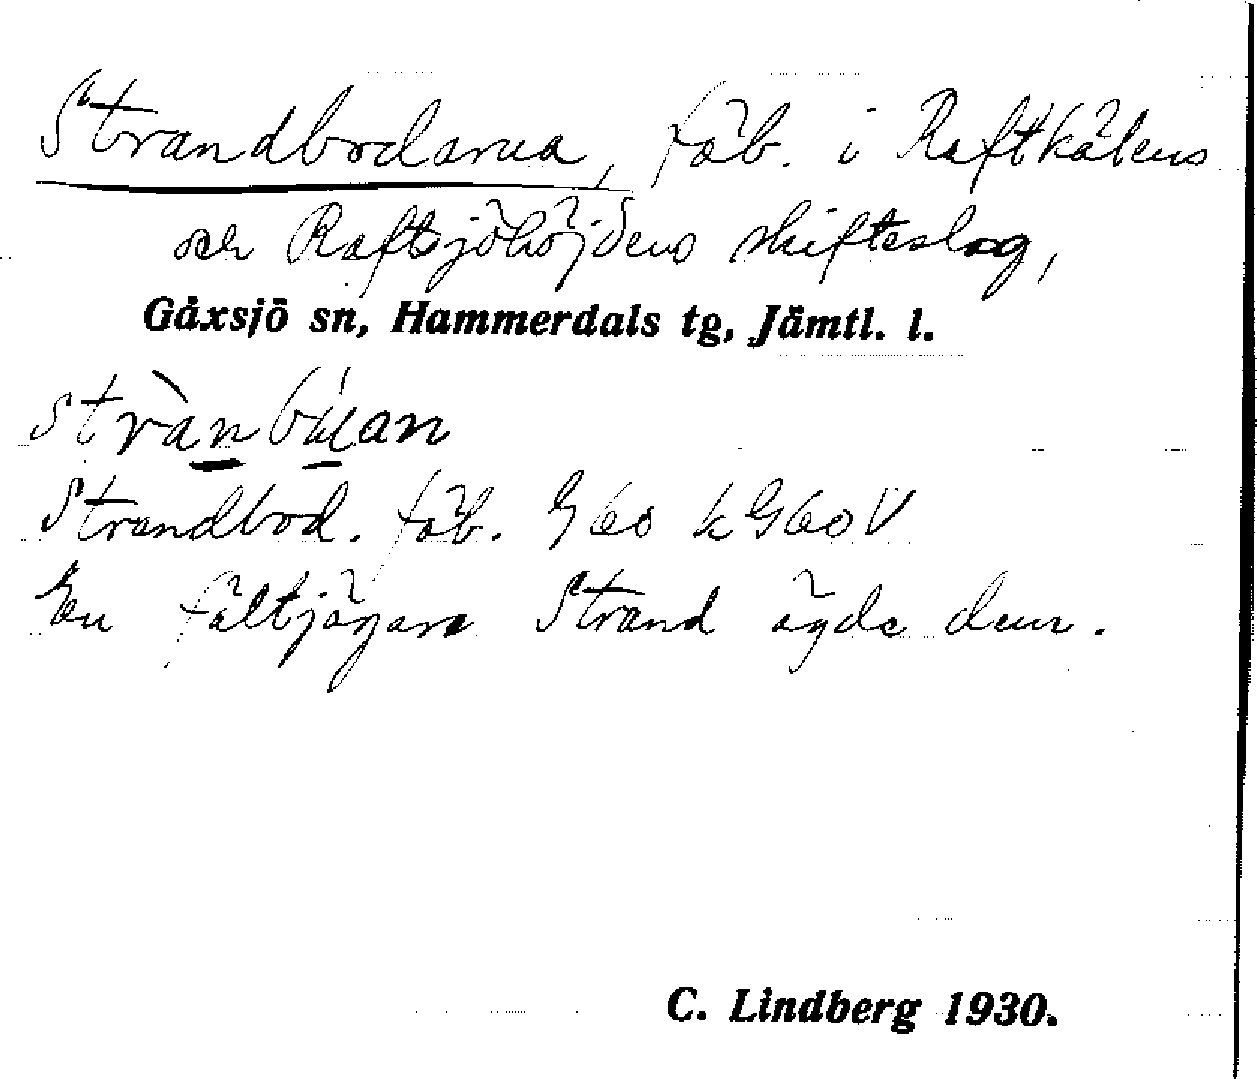 Strandbodarna, fäb. i Raftkälens
och Raftsjöhöjdens skifteslag,
Gåxsjö sn, Hammerdals tg, Jämtl. l.
Strandbod. fäb. G60 k G60V
En fältjägare Strand ägde den.
C. Lindberg 1930.